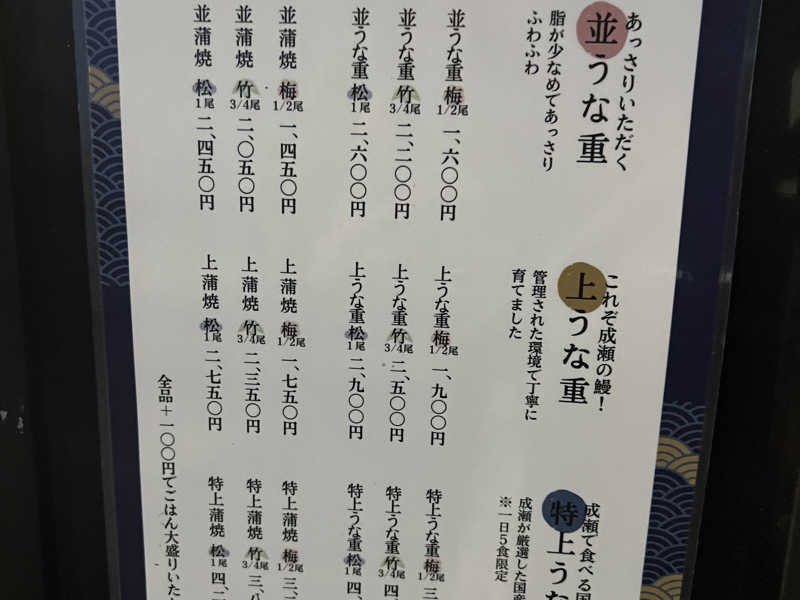 あっさりいただく
並うな重
脂が少なめであっさり
ふわふわ
並うな重 梅 1/2尾 一、六〇〇円
並うな重 竹 3/4尾 二、二〇〇円
並うな重 松 1尾 二、六〇〇円
並蒲焼 梅 1/2尾 一、四五〇円
並蒲焼 竹 3/4尾 二、〇五〇円
並蒲焼 松 1尾 二、四五〇円
これぞ成瀬の鰻！
上うな重
管理された環境で丁寧に
育てました
上うな重 梅 1/2尾 一、九〇〇円
上うな重 竹 3/4尾 二、五〇〇円
上うな重 松 1尾 二、九〇〇円
上蒲焼 梅 1/2尾 一、七五〇円
上蒲焼 竹 3/4尾 二、三五〇円
上蒲焼 松 1尾 二、七五〇円
成瀬で食べる国
特上うな
成瀬が厳選した国産
※一日5食限定
特上うな重 梅 1/2尾 三、
特上うな重 竹 3/4尾 四、
特上うな重 松 1尾 四、
特上蒲焼 梅 1/2尾 三、
特上蒲焼 竹 3/4尾 三、
特上蒲焼 松 1尾 四、二
全品＋一〇〇円でごはん大盛りいた